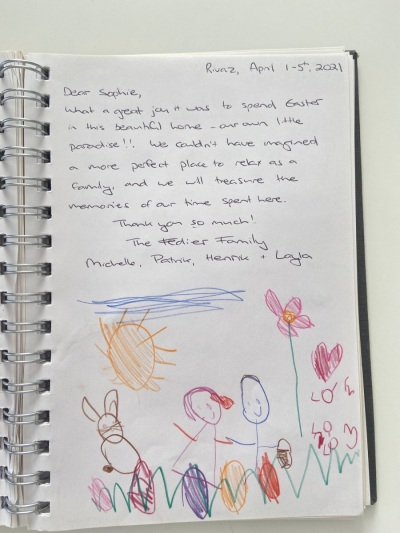 Rivaz, April 1-5th, 2021
Dear Sophie,
What a great joy it was to spend Easter
in this beautiful home - our own little
paradise!! We couldn't have imagined
a more perfect place to relax as a
family, and we will treasure the
memories of our time spent here.
Thank you so much!
The Fedier Family
Michelle, Patrik, Henrik + Layla